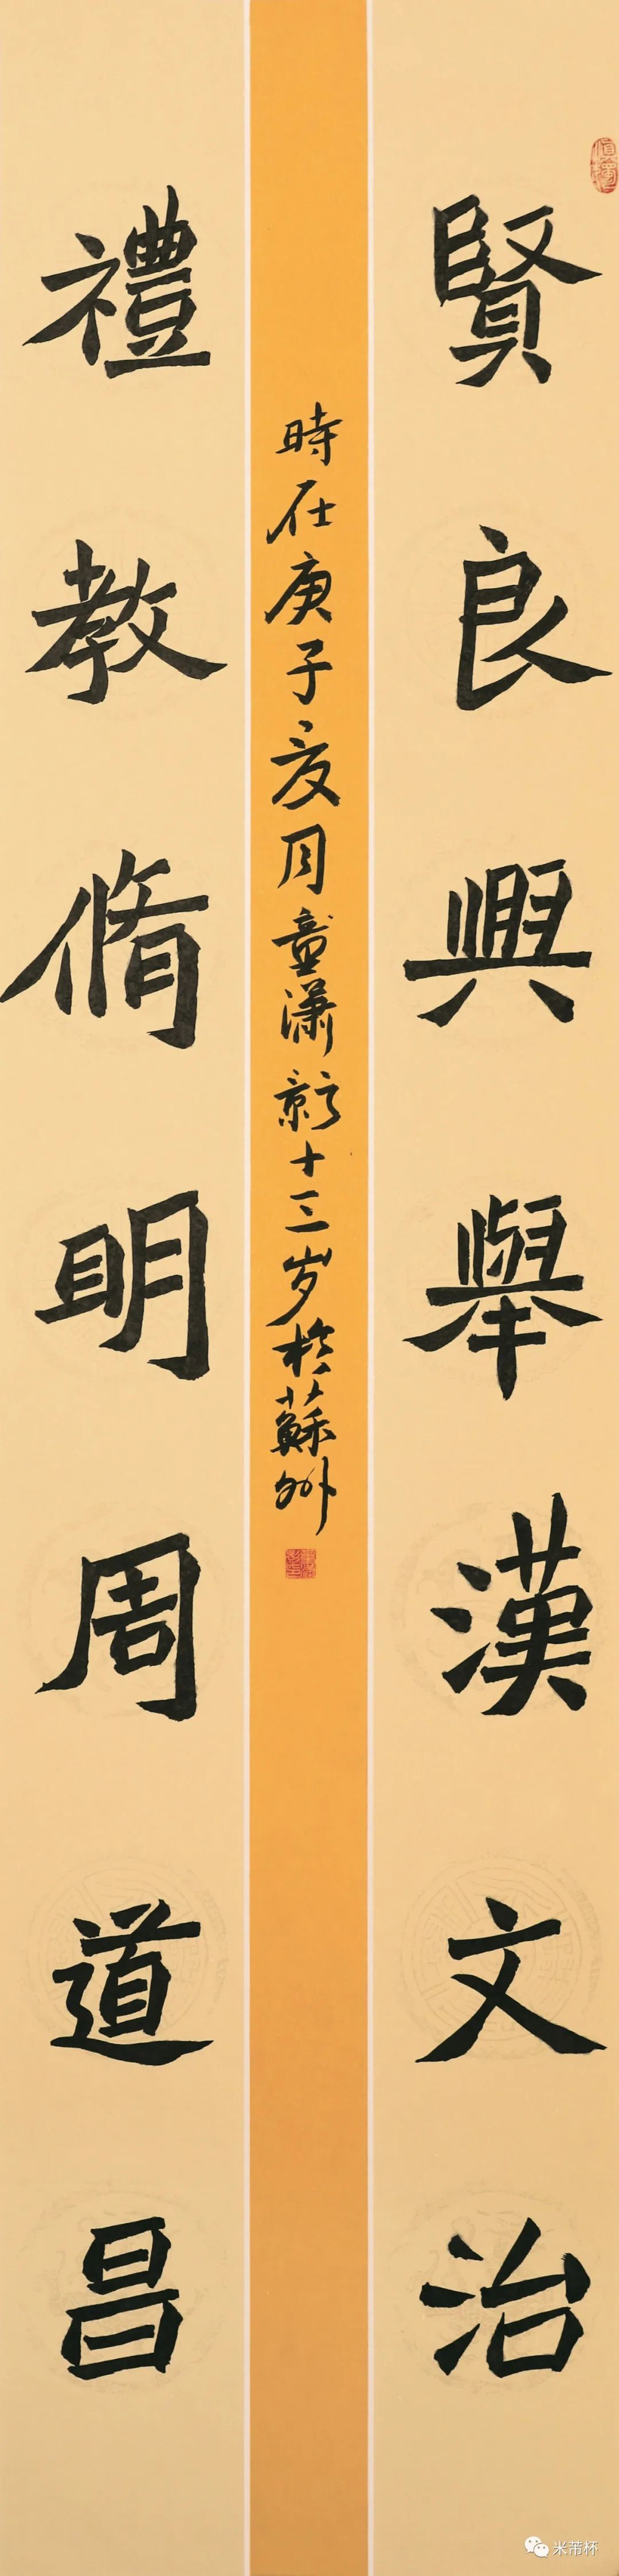 賢良興舉漢文治
時在庚子月童潇影十三岁於蘇州
禮教脩明周道昌
米芾杯